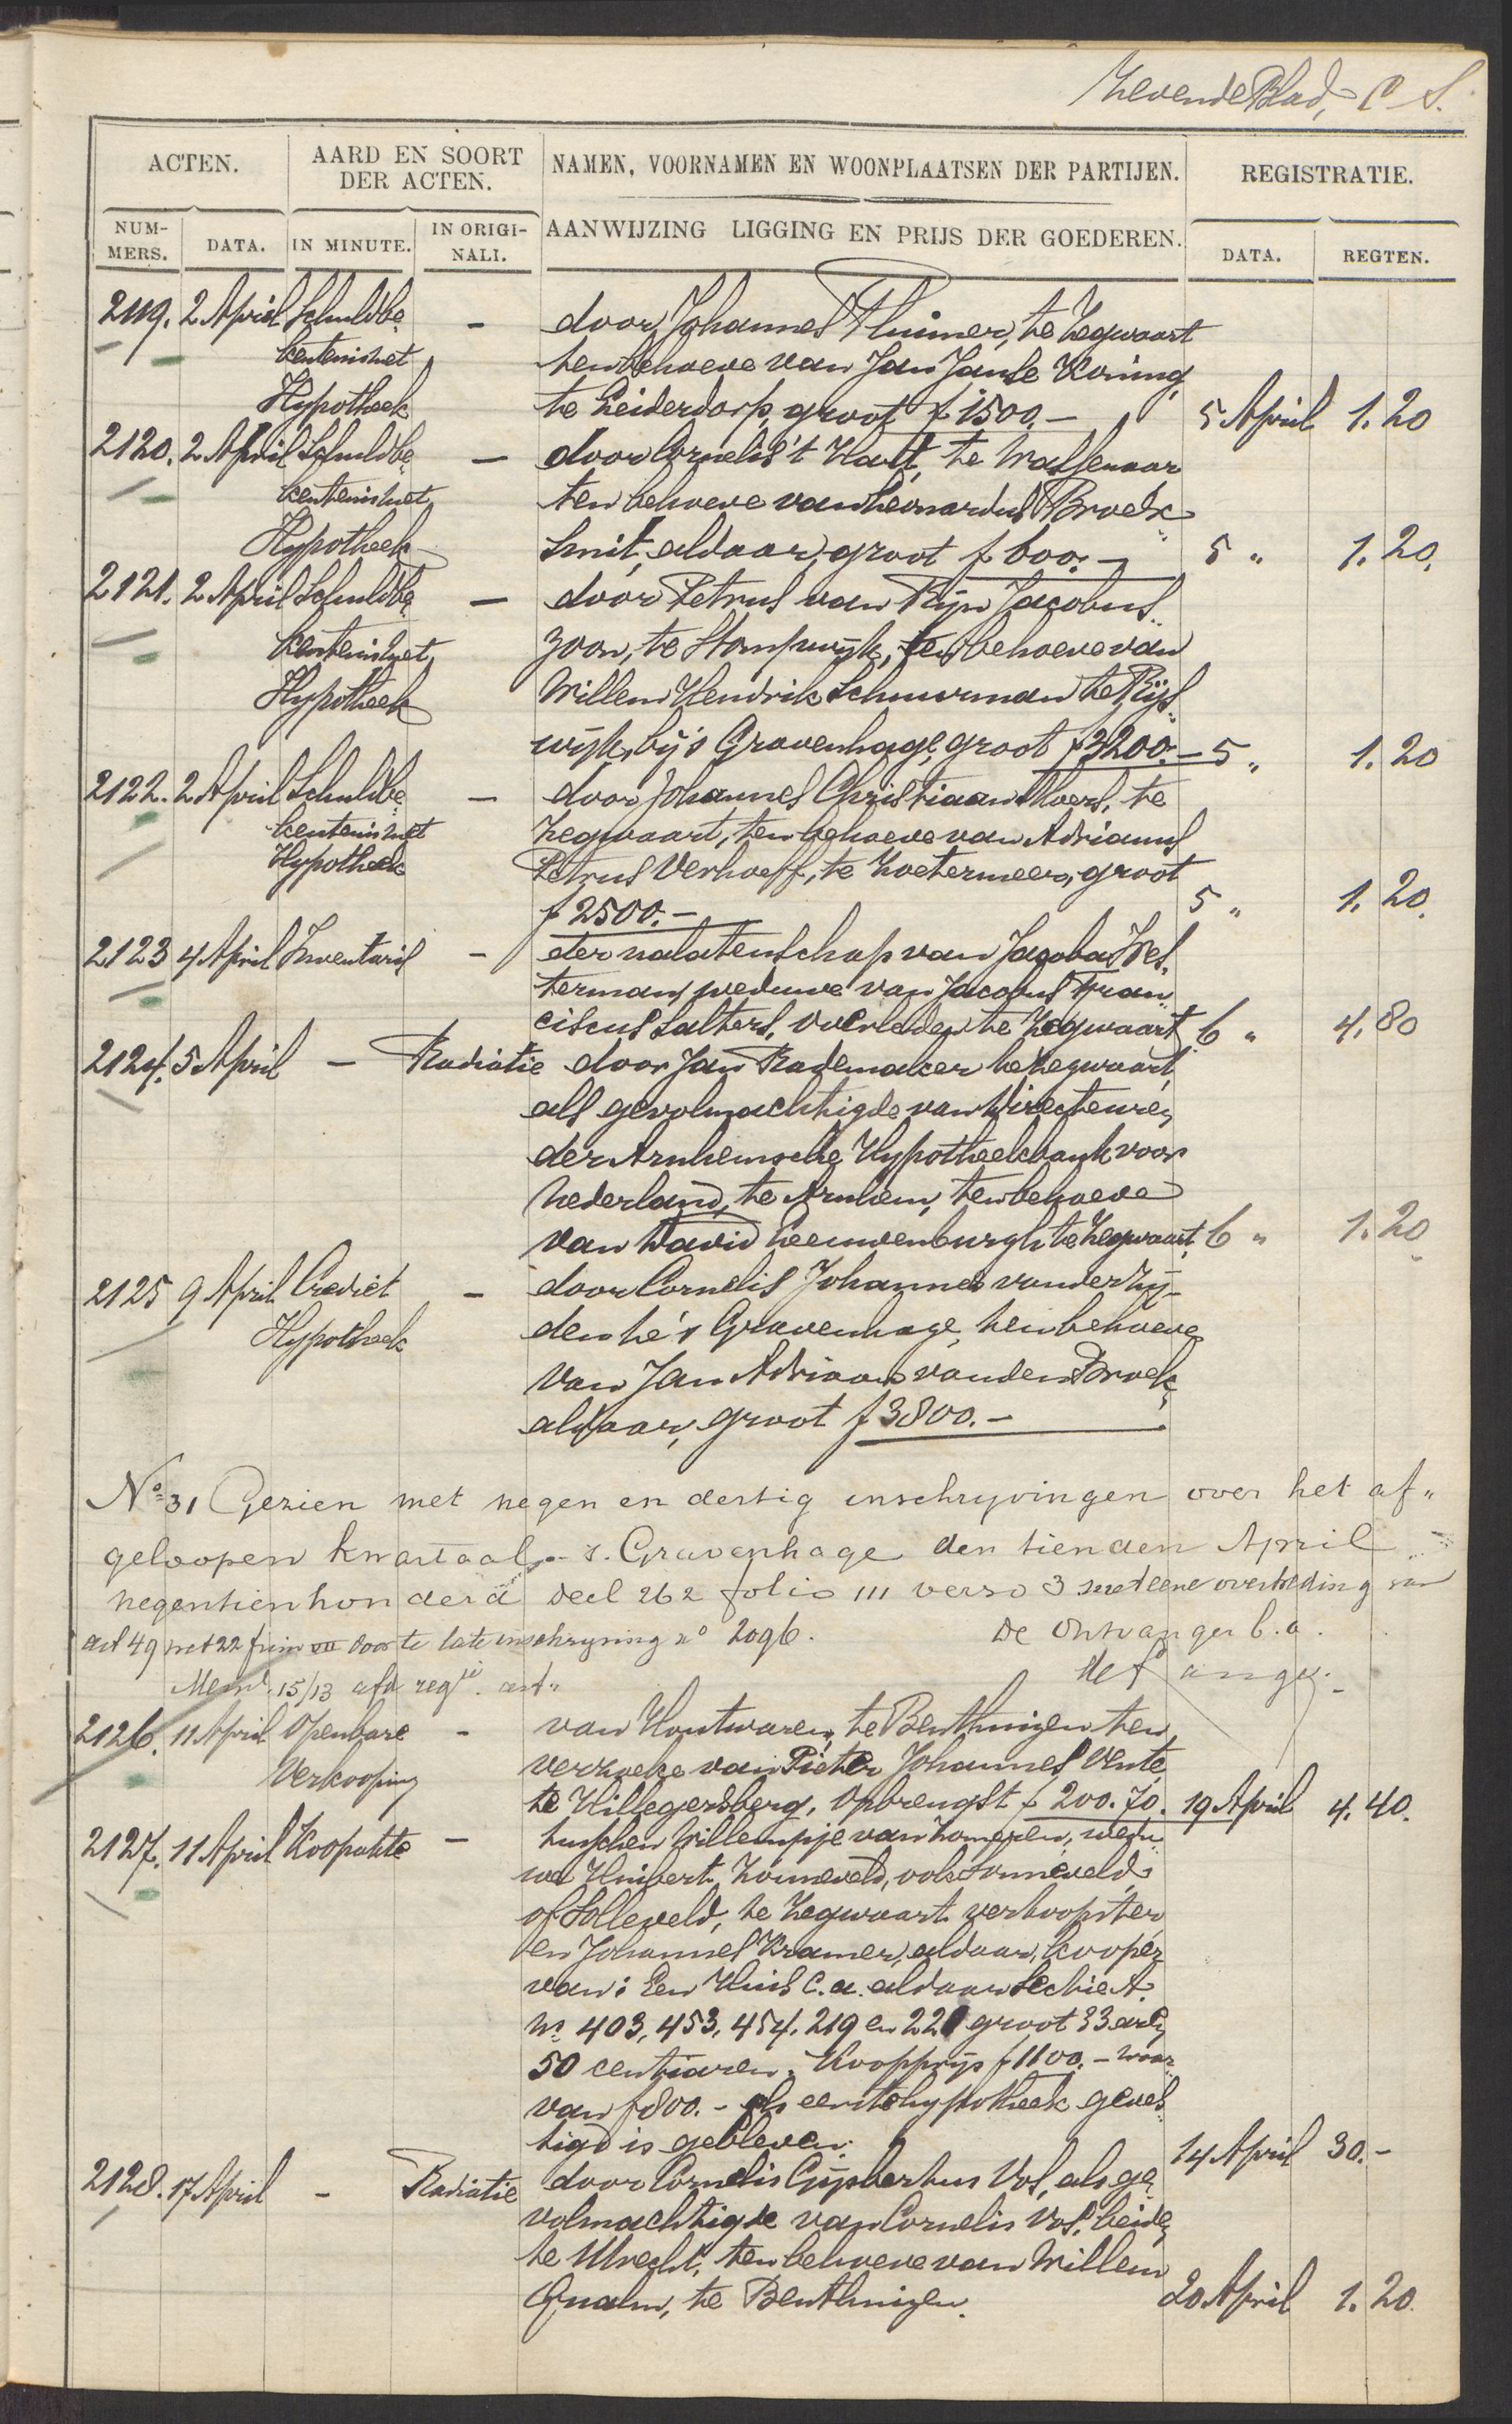 Zevende Blad,
ACTEN. AARD EN SOORT DER ACTEN. NAMEN, VOORNAMEN EN WOONPLAATSEN DER PARTIJEN. REGISTRATIE.
NUM-MERS. DATA. IN MINUTE. IN ORIGI-NALI. AANWIJZING LIGGING EN PRIJS DER GOEDEREN. DATA. REGTEN.
2119. 2 April Schuldbe- - door Johannes Pluimer, te Zegwaart
kentenis met ten behoeve van Jan Janse Koning,
Hypotheek te Leiderdorp, groot f 1500.- 5 April 1.20
2120. 2 April Schuldbe- - door Cornelis 't Hart, te Wassenaar
kentenis met ten behoeve van Leonardus Broek-
Hypotheek Smit, aldaar, groot f 600.- 5 " 1.20.
2121. 2 April Schuldbe- - door Petrus van Rijn Jacobus-
kentenis met zoon, te Stompwijk, ten behoeve van
Hypotheek Willem Hendrik Schuurman te Rijs-
wijk, bij 's Gravenhage, groot f 3200.- 5 " 1.20
2122. 2 April Schuldbe- - door Johannes Christiaan Moers, te
kentenis met Zegwaart, ten behoeve van Adrianus
Hypotheek Petrus Verhoeff, te Zoetermeer, groot
f 2500.- 5 " 1.20.
2123 4 April Inventaris - der nalatenschap van Jacoba Wes-
terman, weduwe van Jacobus Fran-
ciscus Salters, overleden te Zegwaart 6 " 4.80
2124. 5 April - Radiatie door Jan Rademaker te Zegwaart,
als gevolmachtigde van Directeuren
der Arnhemsche Hypotheekbank voor
Nederland, te Arnhem, ten behoeve
van David Leeuwenburgh te Zegwaart. 6 " 1.20
2125 9 April Crediet - door Cornelis Johannes van der Zij-
Hypotheek den te 's Gravenhage, ten behoeve
van Jan Adriaan van den Broek,
aldaar, groot f 3800.-
No 31 Gezien met negen en dertig inschryvingen over het af-
geloopen kwartaal. - s. Gravenhage den tienden April
negentienhonderd deel 262 folio 111 verso 3 overtreding van
art 49 wet 22 frim VII door te late inschryving no 2096. De Ontvanger b.a.
15/13 afd reg.
2126. 11 April Openbare - van Houtwaren, te Benthuizen ten
Verkooping verzoeke van Pieter Johannes Vente,
te Hillegersberg, Opbrengst f 200.70. 19 April 4.40.
2127. 11 April Koopakte - tusschen Willempje van Zomeren, wedu-
we Huibert Zonneveld, ook Sonneveld
of Solleveld, te Zegwaart verkoopster
en Johannes Kramer, aldaar, kooper
van: Een Huis c.a. aldaar Sectie A.
No 403, 453, 454, 219 en 220 groot 33 aren
50 centiaren. Koopprijs f 1100.- waar-
van f 800.- als eerste hypotheek geves-
tigd is gebleven. 14 April 30.-
2128. 17 April - Radiatie door Cornelis Gijsbertus Vos, als ge-
volmachtigde van Cornelis Vos, beiden
te Utrecht, ten behoeve van Willem
Qualm, te Benthuizen. 20 April 1.20.